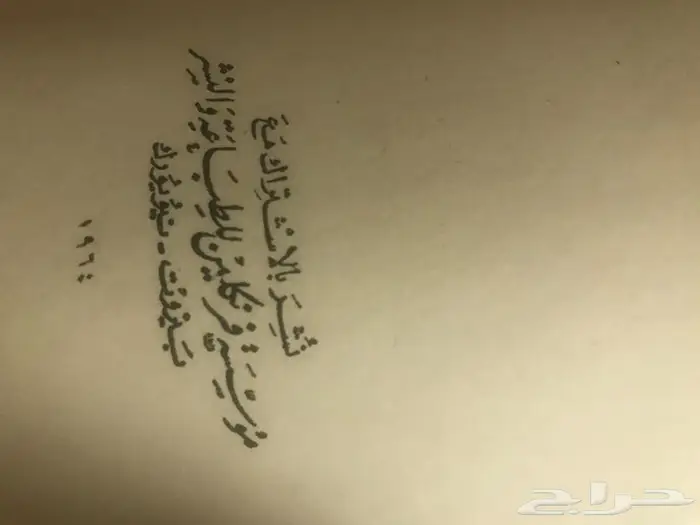 نُشِرَ بالاشْتِرَاك مَعَ
مُؤسَّسَةِ فرَنكلين لِلطِبَاعَةِ وَالنشر
بَيْروُت - نيُويُورك
١٩٦٤
حراج